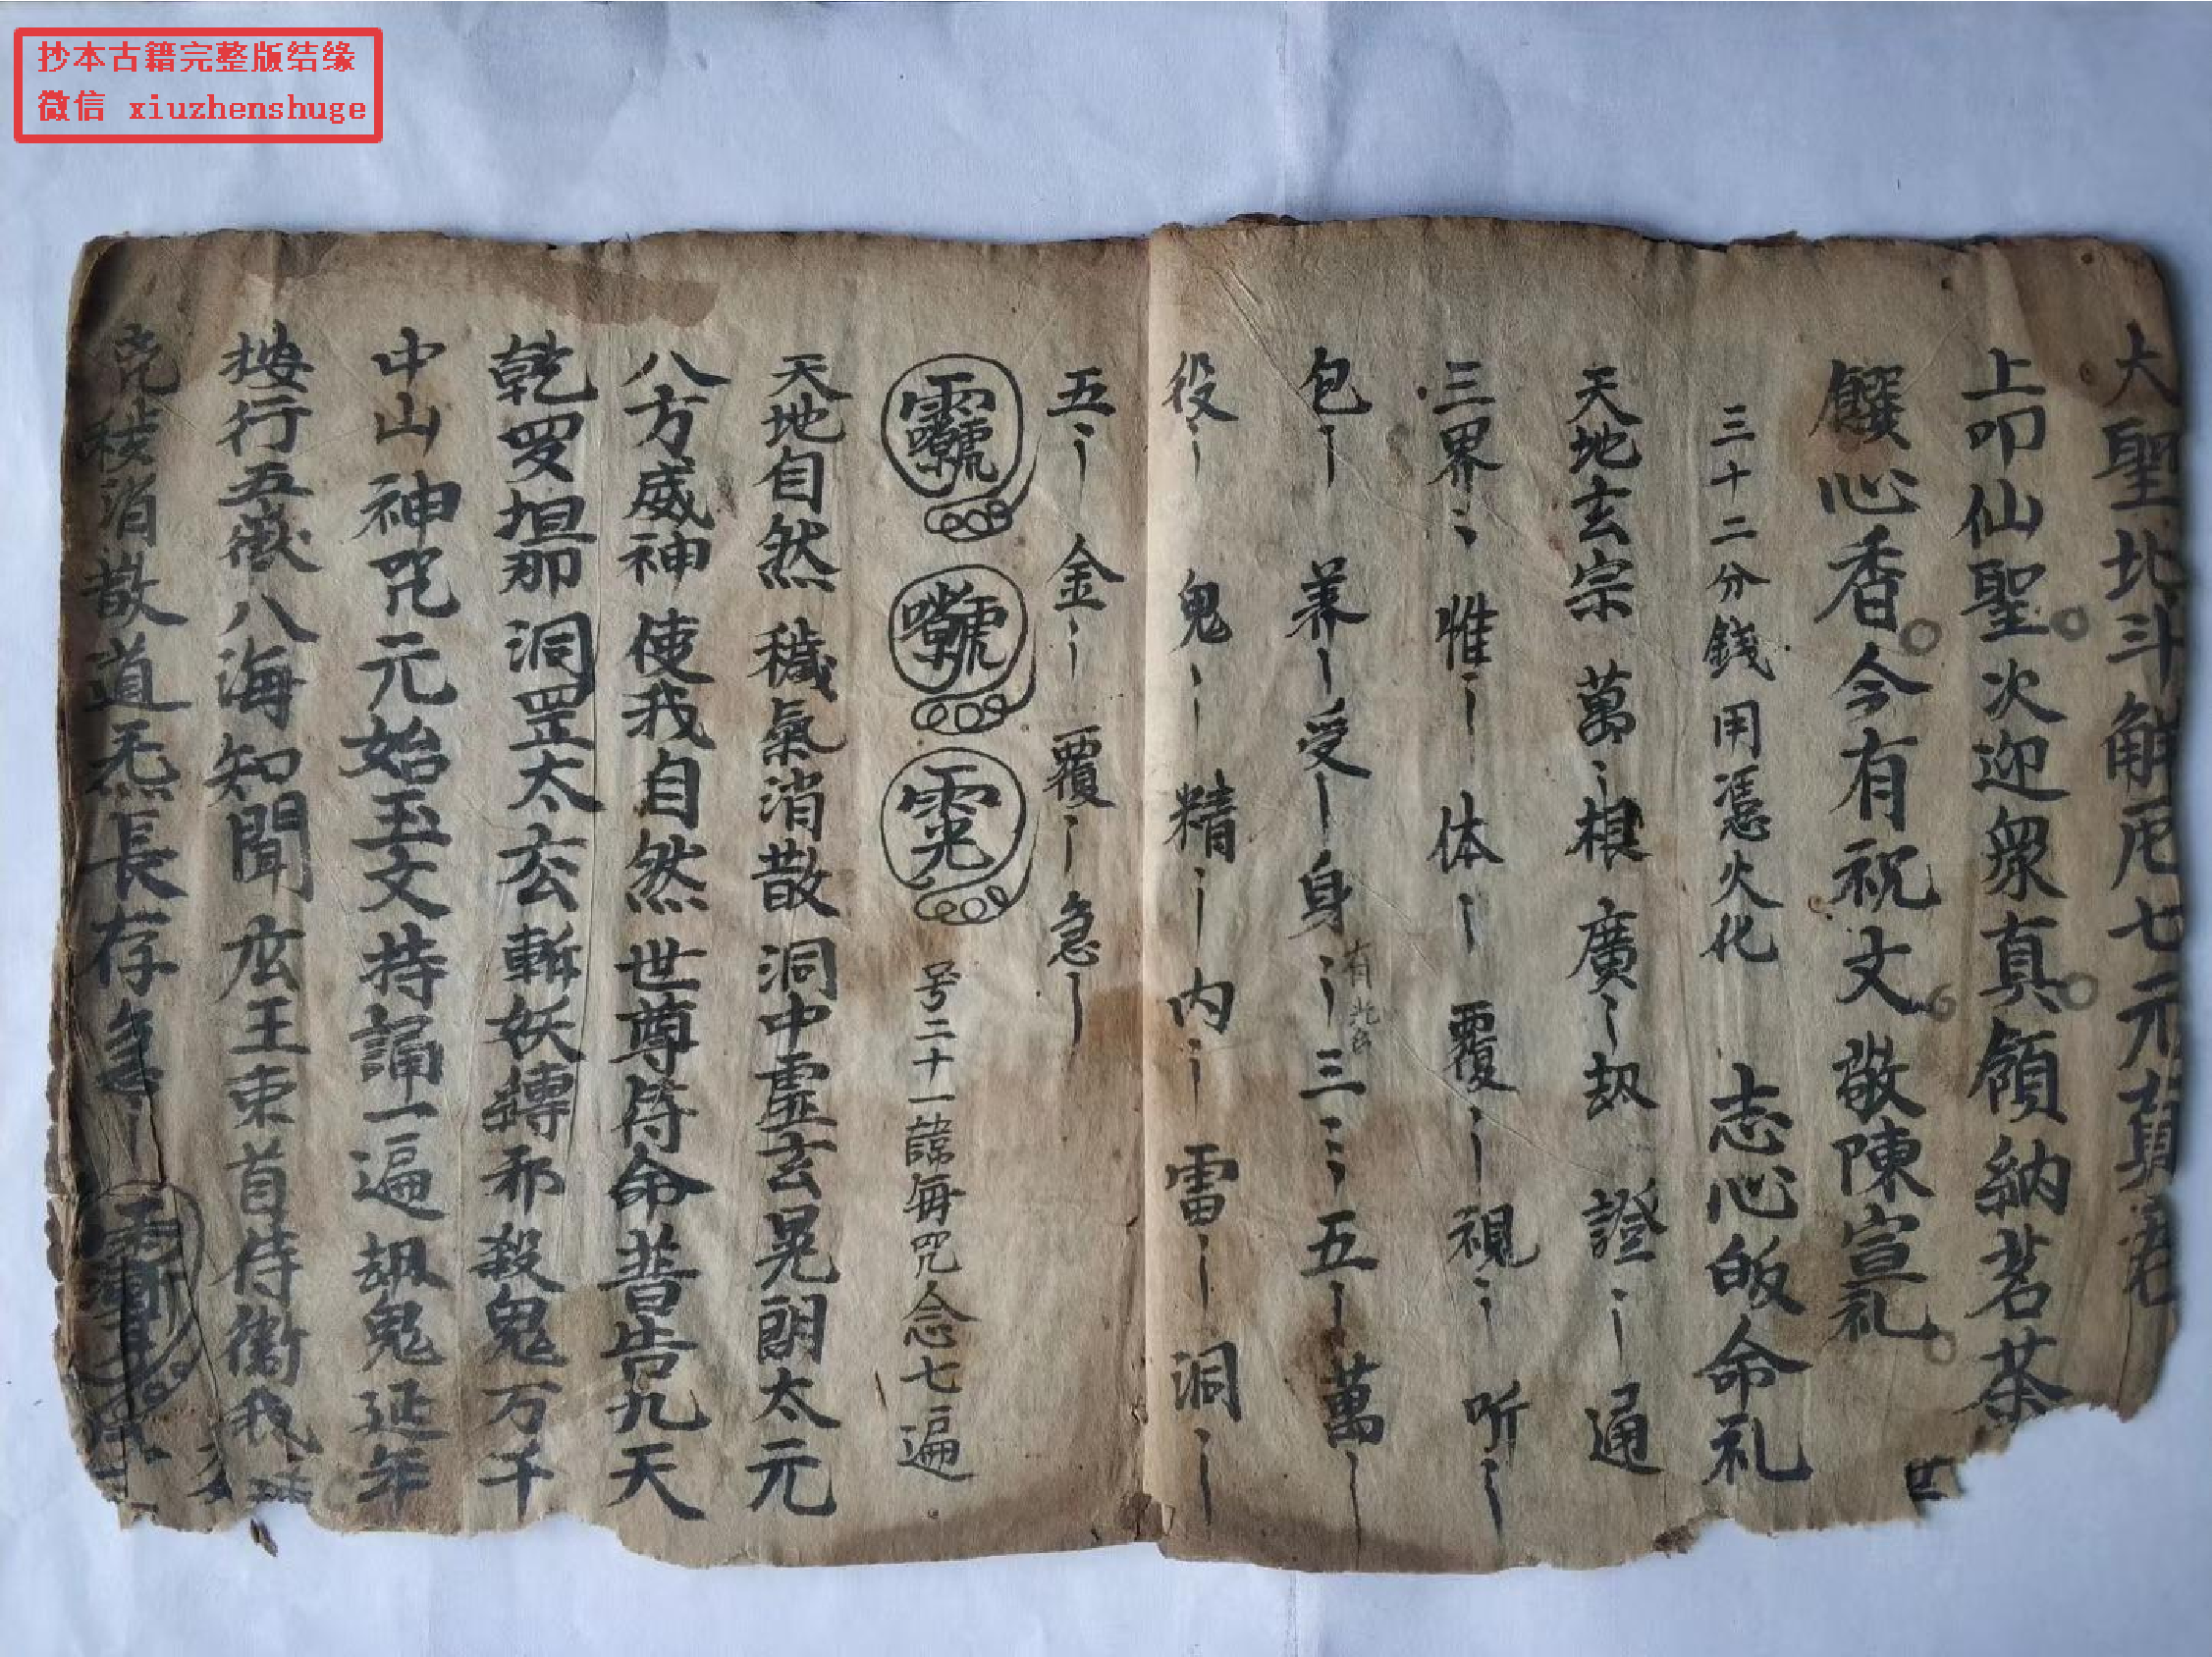 抄本古籍完整版结缘
微信 xiuzhenshuge
大聖北斗解厄七元
上叩仙聖次迎眾真領納茗茶
饌心香今有祝文敬陳宣礼
三十二分錢用憑火化 志心皈命礼
天地玄宗萬根廣劫證通
三界惟体覆視听
包养受身三五萬
有光
役鬼精内雷洞
五金覆急
号二十一每咒念七遍
天地自然穢氣消散洞中虛玄晃朗太元
八方威神使我自然世尊符命普告九天
乾罗坦那洞罡太玄斬妖縛邪殺鬼万千
中山神咒元始玉文持誦一遍刼鬼延年
按行五嶽八海知聞玄王束首侍衛我
穢消散道炁長存急